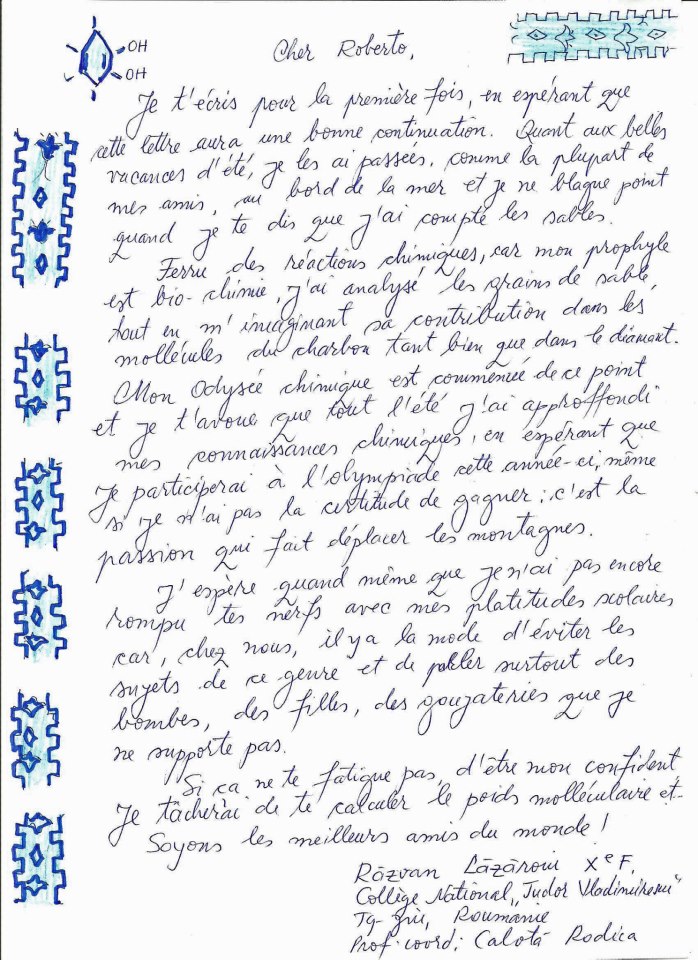 OH
OH
Cher Roberto,
Je t'écris pour la première fois, en espérant que
cette lettre aura une bonne continuation. Quant aux belles
vacances d'été, je les ai passées, comme la plupart de
mes amis, au bord de la mer et je ne blague point
quand je te dis que j'ai compté les sables.
Ferru des réactions chimiques, car mon prophyle
est bio-chimie, j'ai analysé les grains de sable,
tout en m'imaginant sa contribution dans les
mollécules du charbon tant bien que dans le diamant.
Mon Odysée chimique est commencée de ce point
et je t'avoue que tout l'été j'ai approffondi
mes connaissances chimiques, en espérant que
je participerai à l'olympiade cette année-ci, même
si je n'ai pas la certitude de gagner; c'est la
passion qui fait déplacer les montagnes.
J'espère quand même que je n'ai pas encore
rompu tes nerfs avec mes platitudes scolaires
car, chez nous, il y a la mode d'éviter les
sujets de ce genre et de parler surtout des
bombes, des filles, des goujateries que je
ne supporte pas.
Si ça ne te fatigue pas, d'être mon confident,
Je tâcherai de te calculer le poids molléculaire et
Soyons les meilleurs amis du monde!
Răzvan Lăzăroiu Xe F,
Collège National „Tudor Vladimirescu"
Tg-Jiu, Roumanie
Prof. coord: Calotă Rodica